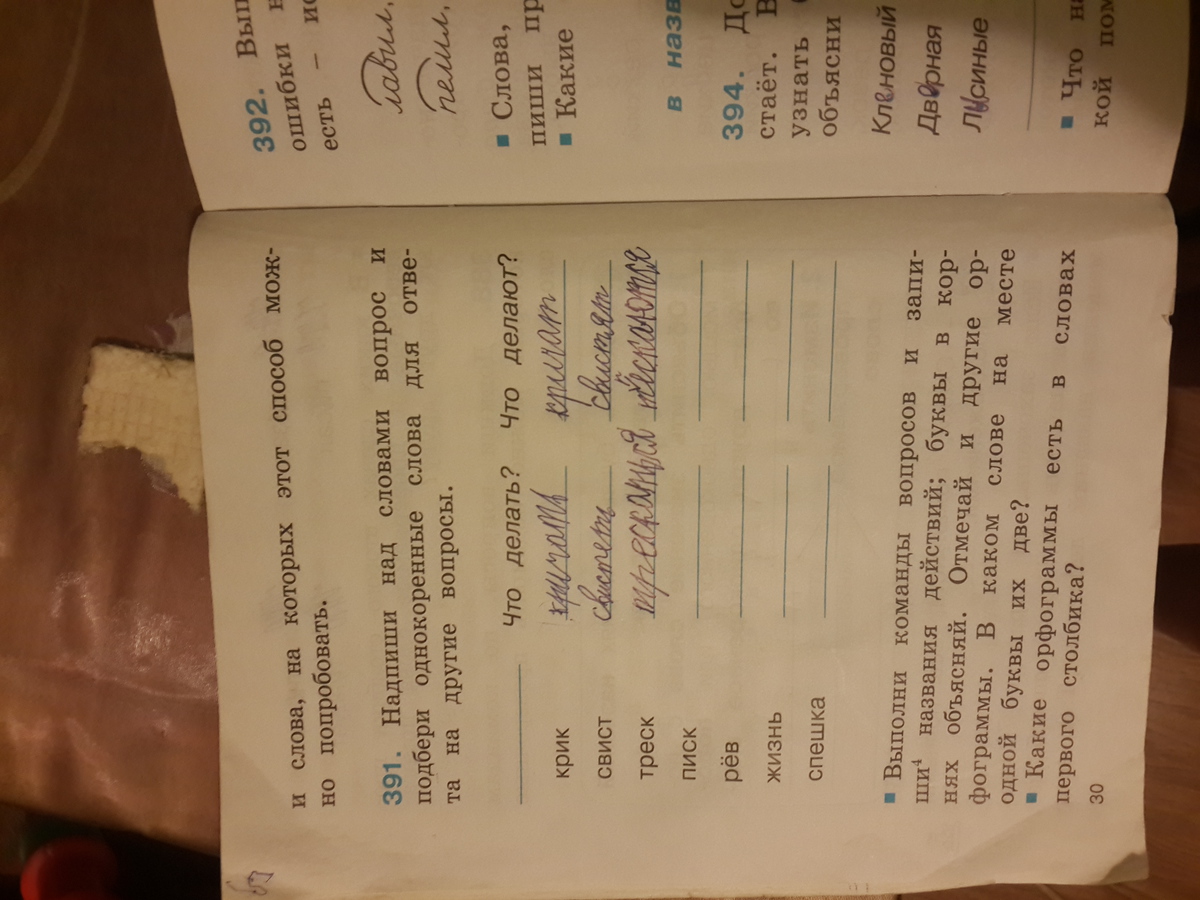 и слова, на которых этот способ мож-
но попробовать.
391. Надпиши над словами вопрос и
подбери однокоренные слова для отве-
та на другие вопросы.
Что делать? Что делают?
крик кричать кричат
свист свистеть свистят
треск
писк
рёв
жизнь
спешка
■ Выполни команды вопросов и запи-
ши⁴ названия действий; буквы в кор-
нях объясняй. Отмечай и другие ор-
фограммы. В каком слове на месте
одной буквы их две?
■ Какие орфограммы есть в словах
первого столбика?
30
392. Вып
ошибки н
есть – ис
лавил,
пелил,
■ Слова,
пиши пр
■ Какие
в назв
394. До
стаёт. В
узнать
объясни
Кленовый
Дверная
Лисиные
■ Что на
кой пом